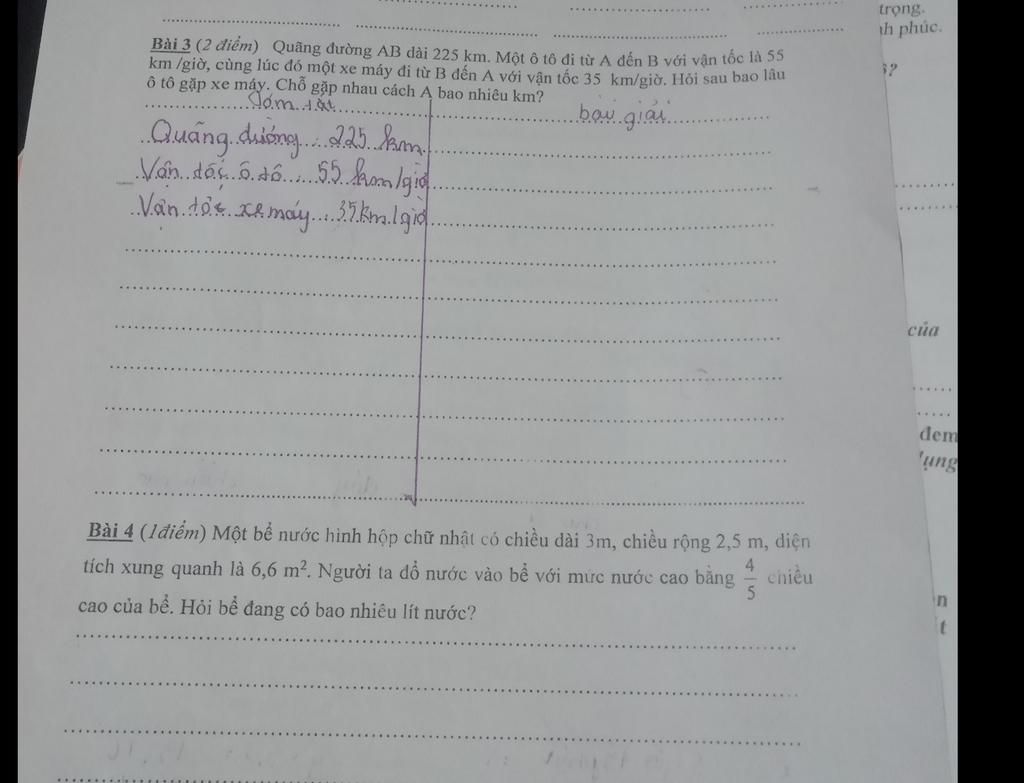 trọng.
nh phúc.
Bài 3 (2 điểm) Quãng đường AB dài 225 km. Một ô tô đi từ A đến B với vận tốc là 55
km /giờ, cùng lúc đó một xe máy đi từ B đến A với vận tốc 35 km/giờ. Hỏi sau bao lâu
ô tô gặp xe máy. Chỗ gặp nhau cách A bao nhiêu km?
bài giải
Quãng đường : 225 km
Vận tốc ô tô : 55 km/giờ
Vận tốc xe máy : 35km/giờ
của
đem
Bài 4 (1điểm) Một bể nước hình hộp chữ nhật có chiều dài 3m, chiều rộng 2,5 m, diện
tích xung quanh là 6,6 m². Người ta đổ nước vào bể với mức nước cao bằng 4/5 chiều
cao của bể. Hỏi bể đang có bao nhiêu lít nước?